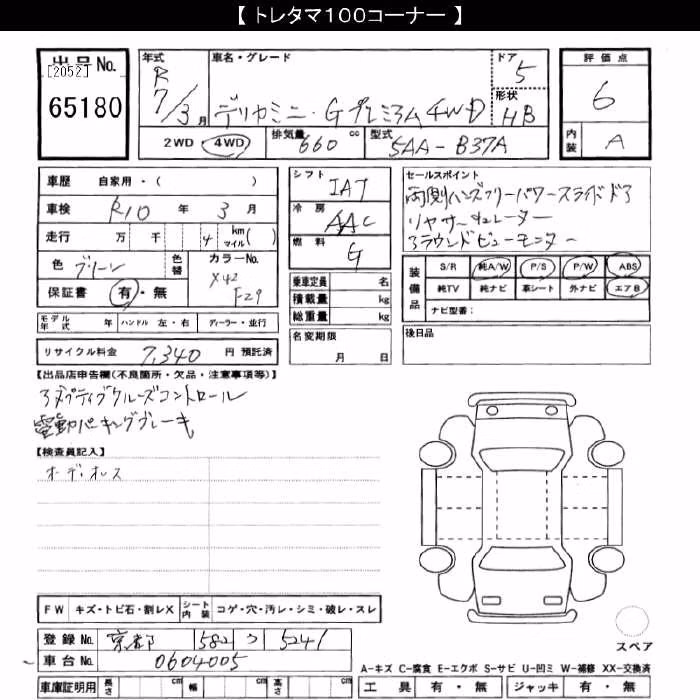 【 トレタマ100コーナー 】
出品No.
[2052]
65180
年式
R
7/3月
車名・グレード
デリカミニ・Gプレミアム4WD
ドア
5
形状
HB
評価点
6
内装
A
2WD 4WD
排気量 660 cc
型式 5AA-B37A
車歴 自家用・( )
車検 R10 年 3 月
走行 万 千 4 km マイル( )
色 グリーン
色替
カラーNo.
X42
F29
保証書 有・無
モデル年式 年 ハンドル 左・右 ディーラー・並行
リサイクル料金 7,340 円 預託済
シフト IAT
冷房 AAC
燃料 G
乗車定員 名
積載量 kg
総重量 kg
名変期限
月 日
セールスポイント
両側ハンズフリーパワースライドドア
リヤサーキュレーター
アラウンドビューモニター
装備品
S/R 純A/W P/S P/W ABS
純TV 純ナビ 革シート 外ナビ エアB
ナビ型番:
後日品
【出品店申告欄(不良箇所・欠品・注意事項等)】
アダプティブクルーズコントロール
電動パーキングブレーキ
【検査員記入】
オーディオレス
FW キズ・トビ石・割レX シート内装 コゲ・穴・汚レ・シミ・破レ・スレ
登録No. 京都 582 つ 5241
車台No. 0604005
車庫証明用 長さ cm 幅 cm 高さ cm
スペア
A-キズ C-腐食 E-エクボ S-サビ U-凹ミ W-補修 XX-交換済
工具 有・無 ジャッキ 有・無